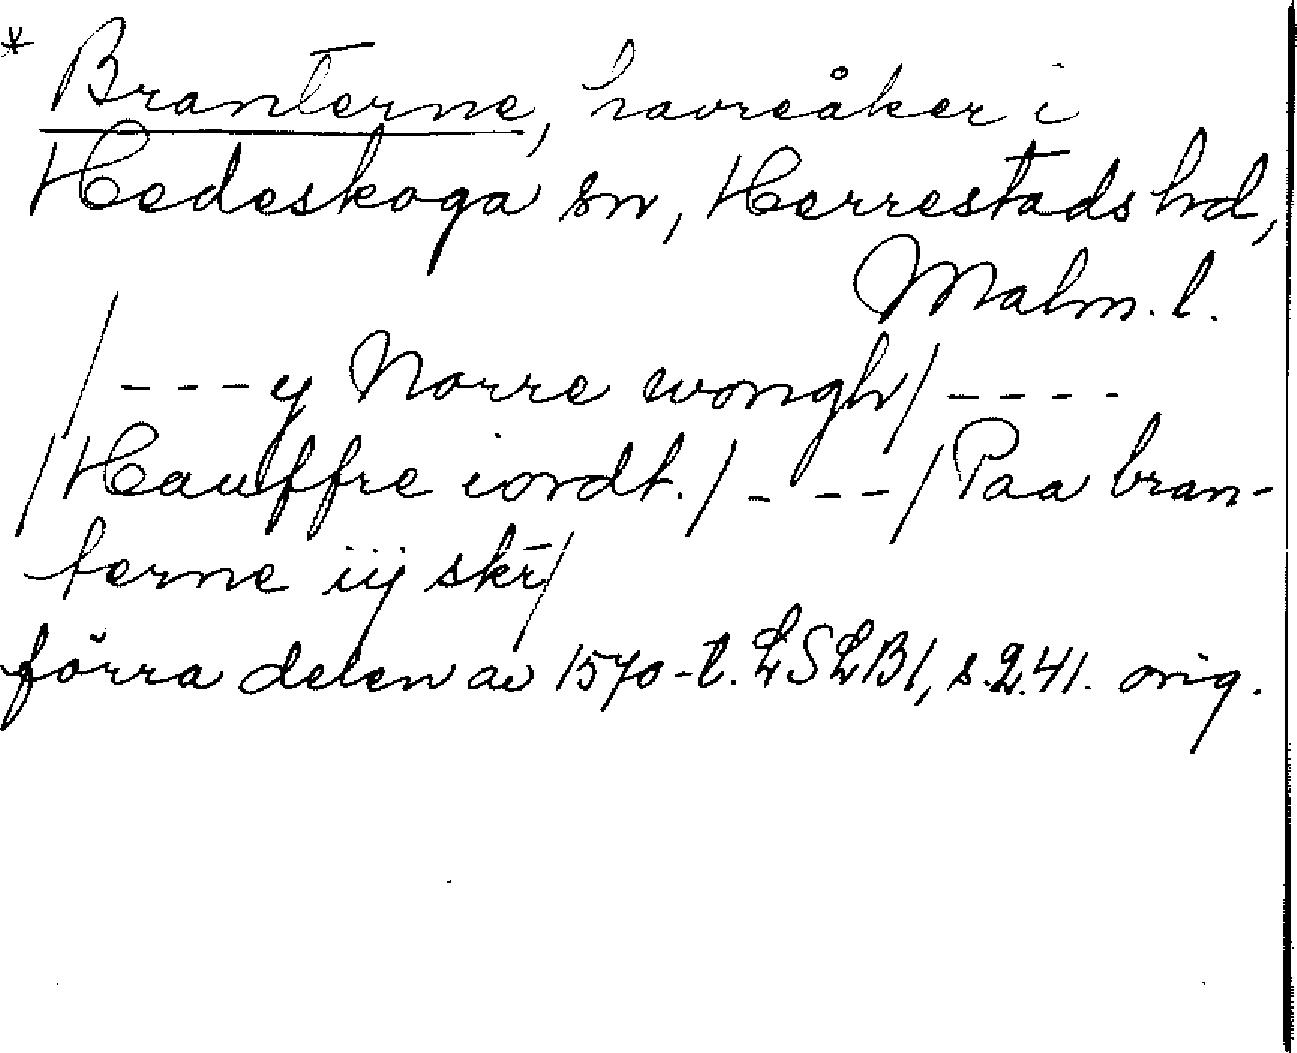 * Branterne, havreåker i
Hedeskoga sn, Herrestads hd,
Malm. l.
/---y Norre wongh/----
/Hauffre iordt./---/Paa bran-
terne iij skr̄/
förra delen av 1570-t. LSLB1, s. 241. orig.